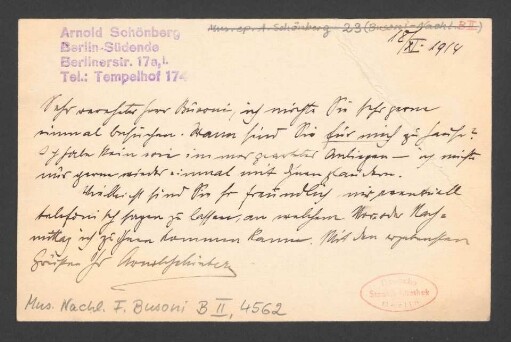 Arnold Schönberg
Berlin-Südende
Berlinerstr. 17a,I.
Tel.: Tempelhof 174
Mus. ep. A. Schönberg 29 (Busoni-Nachl. B II)
18/XI. 1914
Sehr verehrter Herr Busoni, ich möchte Sie sehr gerne
einmal besuchen. Wann sind Sie für mich zu Hause?
Ich habe kein wie immer geartetes Anliegen – ich möchte
nur gerne wieder einmal mit Ihnen plaudern.
Vielleicht sind Sie so freundlich mir eventuell
telefonisch sagen zu lassen, an welchem Vor- oder Nach-
mittag ich zu Ihnen kommen kann. Mit den ergebensten
Grüßen Ihr Arnold Schönberg
Staatsbibliothek
Berlin
Mus. Nachl. F. Busoni B II, 4562